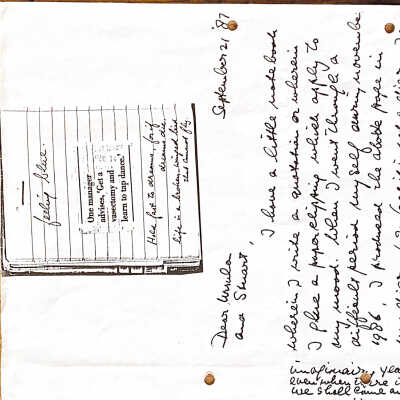 feeling blue
One manager
advises, 'Get a
vasectomy and
learn to tap dance.'
Hold fast to dreams, for if
dreams die,
life is a broken-winged bird
that cannot fly
September 21 '87
Dear Ursula
and Stuart,
I have a little notebook
wherein I write a quotation or wherein
I glue a paperclipping which apply to
my mood. When I went through a
difficult period myself during novembe
1986, I produced the above page in
even when there
we shall come